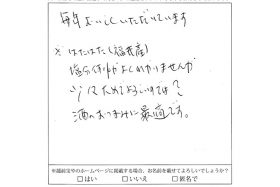 毎年おいしくいただいています
※はたはた(福井産)
塩分何%かよくわかりませんが
ためてよろしいでは?
酒のおつまみに最適です。
※越前宝やのホームページに掲載する場合、お名前を載せてよろしいでしょうか?
□はい □いいえ □匿名で